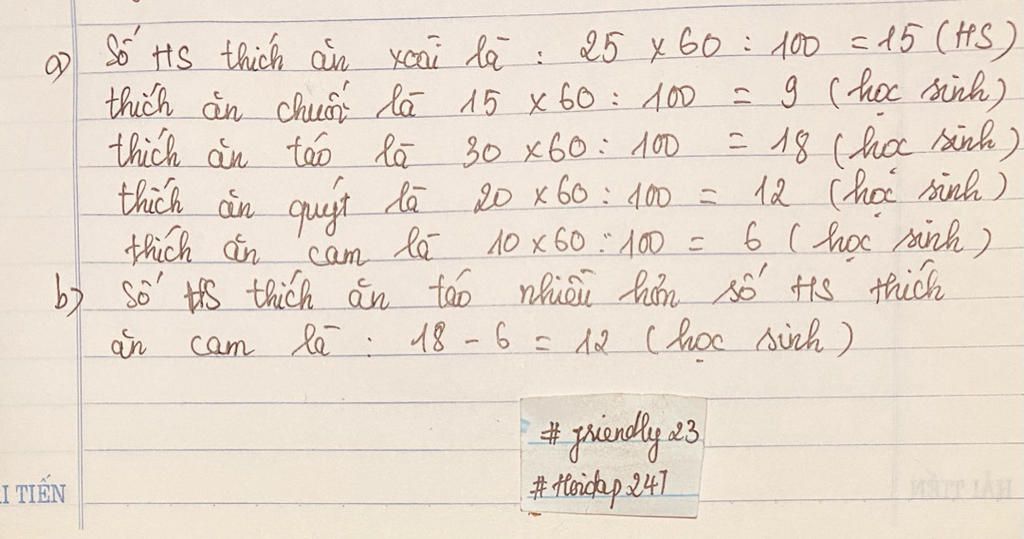 a) Số HS thích ăn xoài là : 25 x 60 : 100 = 15 (HS)
thích ăn chuối là 15 x 60 : 100 = 9 (học sinh)
thích ăn táo là 30 x 60 : 100 = 18 (học sinh)
thích ăn quýt là 20 x 60 : 100 = 12 (học sinh)
thích ăn cam là 10 x 60 : 100 = 6 (học sinh)
b) Số HS thích ăn táo nhiều hơn số HS thích
ăn cam là : 18 - 6 = 12 (học sinh)
# friendly 23
# Hoidap 247
I TIẾN
HẢI TIẾN